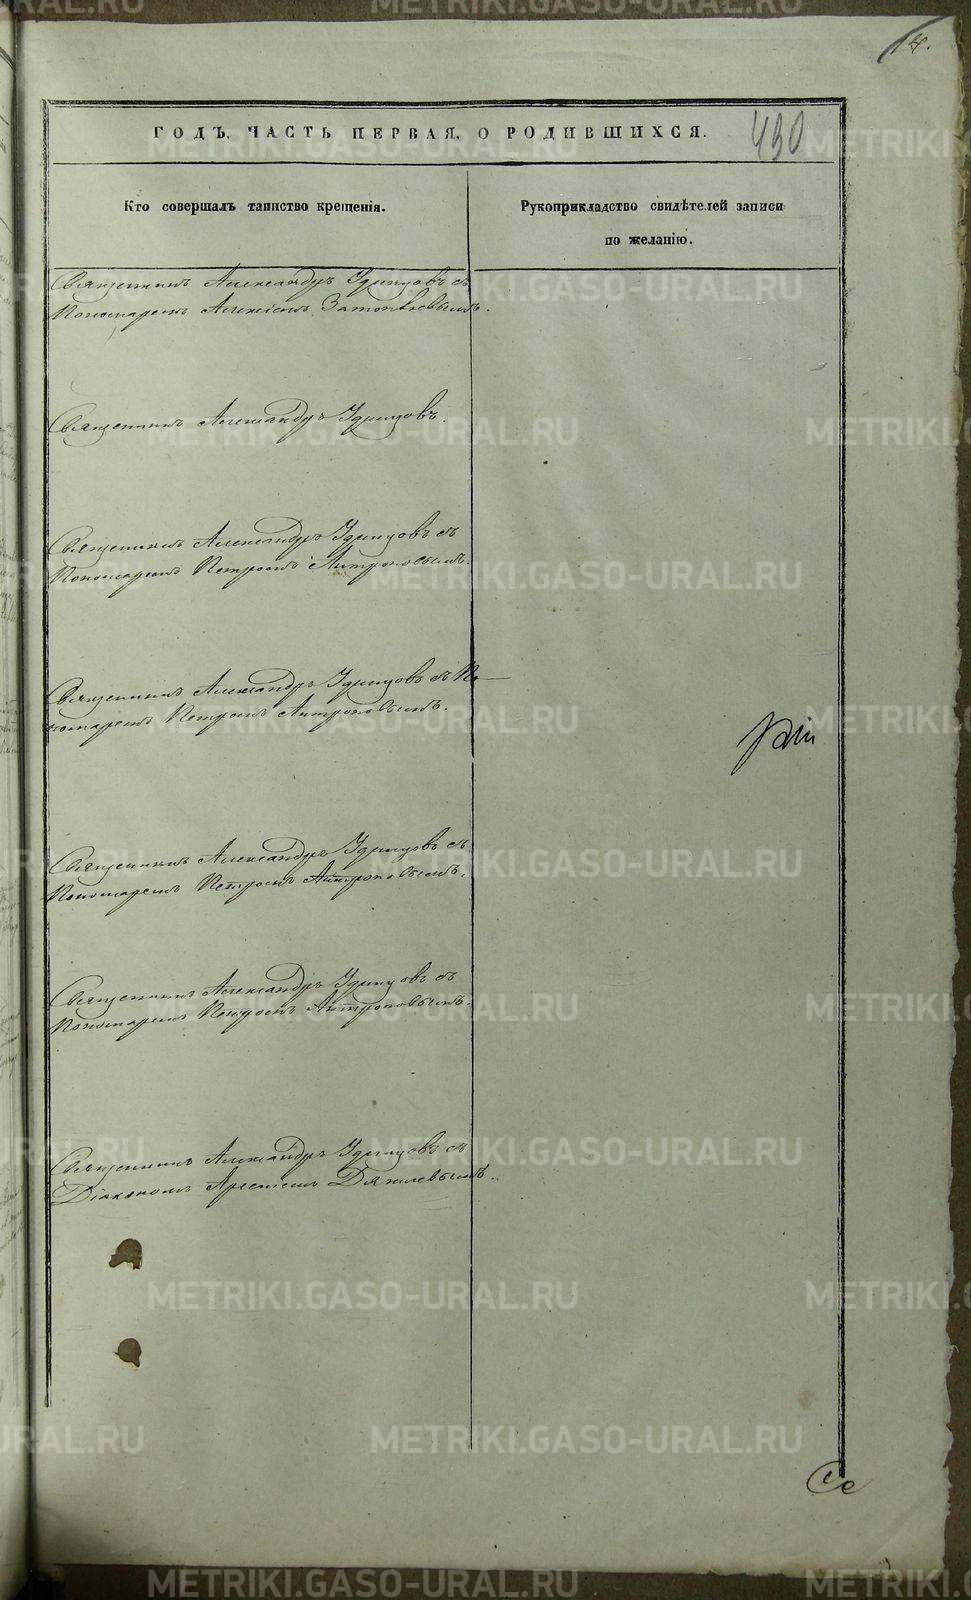 14.
ГОДЪ, ЧАСТЬ ПЕРВАЯ, О РОДИВШИХСЯ.
430
Кто совершалъ таинство крещенія.
Рукоприкладство свидѣтелей записи
по желанію.
Священникъ Александръ Удинцовъ съ
Пономаремъ Алексіемъ
Священникъ Александръ Удинцовъ.
Священникъ Александръ Удинцовъ съ
Пономаремъ Петромъ Антроповымъ.
Священникъ Александръ Удинцовъ съ По-
номаремъ Петромъ Антроповымъ.
Священникъ Александръ Удинцовъ съ
Пономаремъ Петромъ Антроповымъ.
Священникъ Александръ Удинцовъ съ
Пономаремъ Петромъ Антроповымъ.
Священникъ Александръ Удинцовъ съ
Діакономъ Арсеніемъ Дягилевымъ.
METRIKI.GASO-URAL.RU